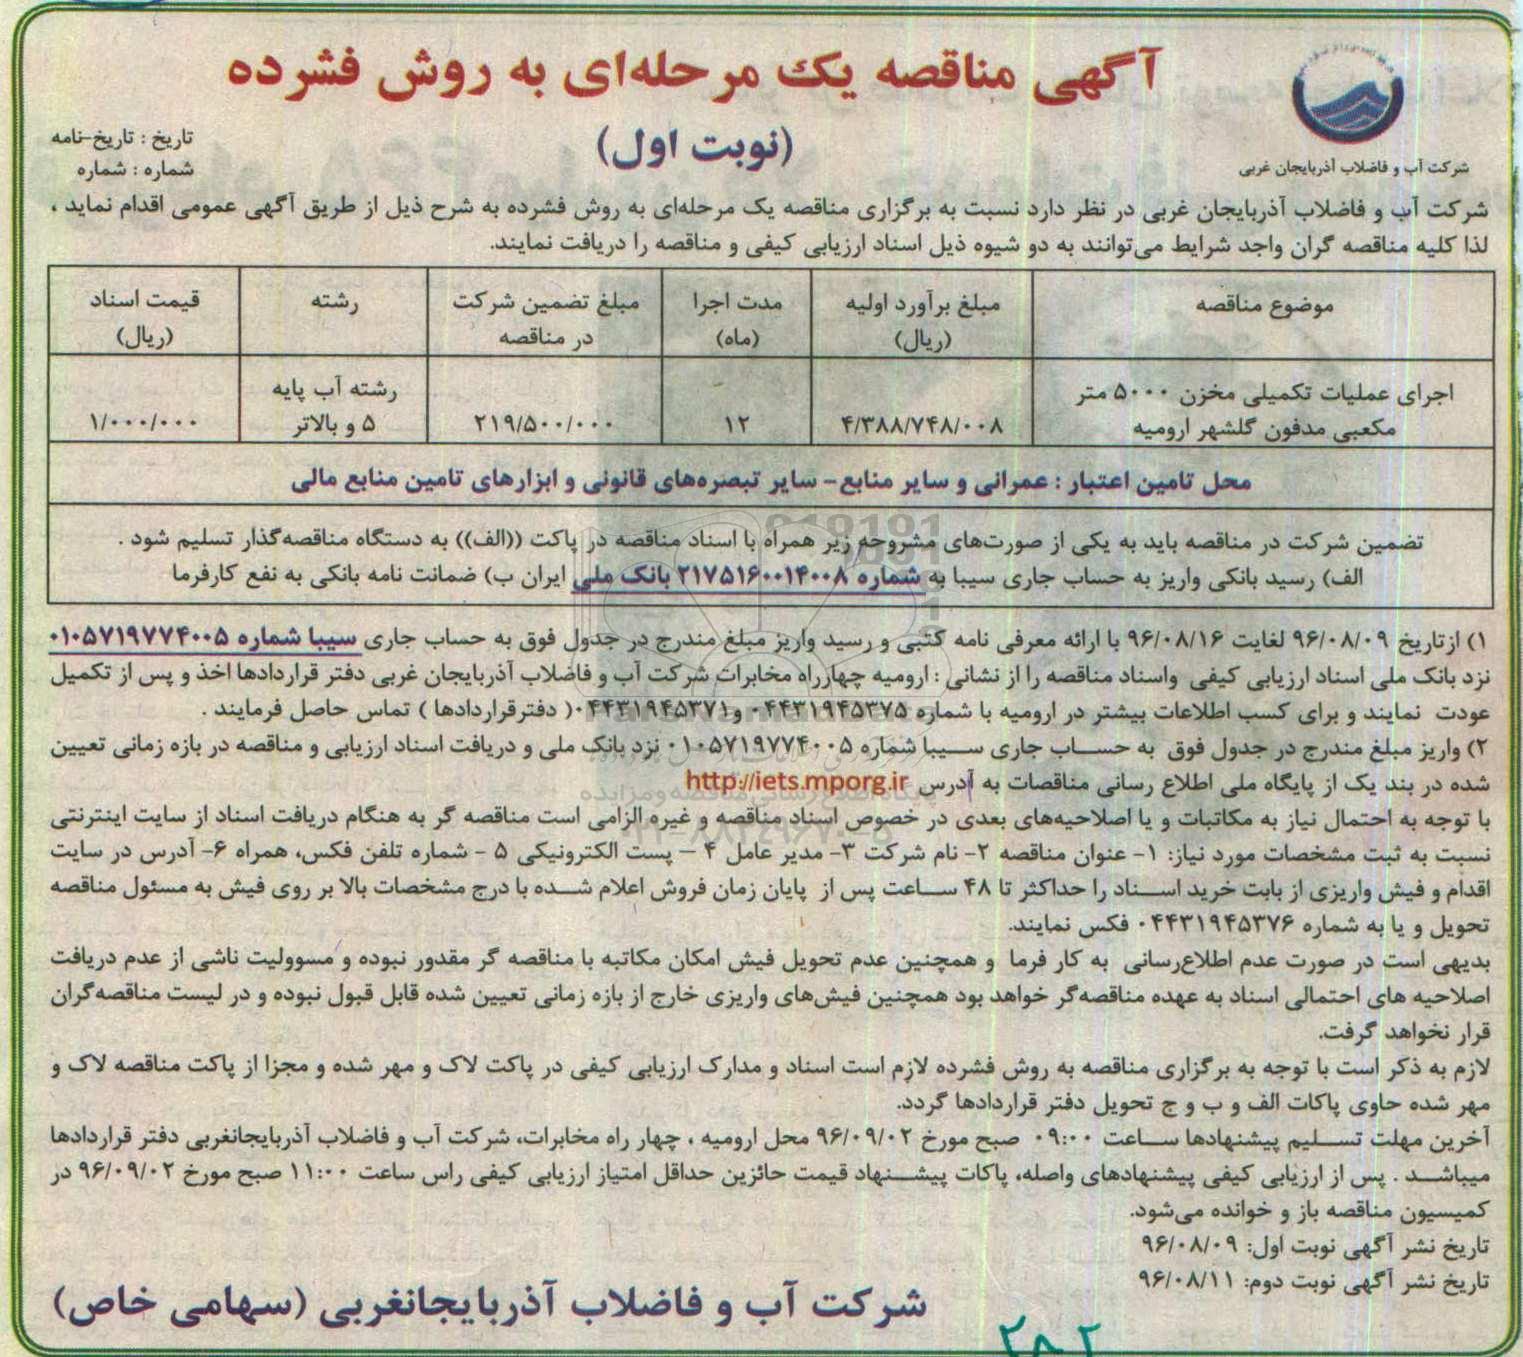 آگهی مناقصه یک مرحله‌ای به روش فشرده
(نوبت اول)
تاریخ : تاریخ-نامه
شماره : شماره
شرکت آب و فاضلاب آذربایجان غربی
شرکت آب و فاضلاب آذربایجان غربی در نظر دارد نسبت به برگزاری مناقصه یک مرحله‌ای به روش فشرده به شرح ذیل از طریق آگهی عمومی اقدام نماید ،
لذا کلیه مناقصه گران واجد شرایط می‌توانند به دو شیوه ذیل اسناد ارزیابی کیفی و مناقصه را دریافت نمایند.
موضوع مناقصه
مبلغ برآورد اولیه
(ریال)
مدت اجرا
(ماه)
مبلغ تضمین شرکت
در مناقصه
رشته
قیمت اسناد
(ریال)
اجرای عملیات تکمیلی مخزن ۵۰۰۰ متر
مکعبی مدفون گلشهر ارومیه
۴/۳۸۸/۷۴۸/۰۰۸
۱۲
۲۱۹/۵۰۰/۰۰۰
رشته آب پایه
۵ و بالاتر
۱/۰۰۰/۰۰۰
محل تامین اعتبار : عمرانی و سایر منابع- سایر تبصره‌های قانونی و ابزارهای تامین منابع مالی
تضمین شرکت در مناقصه باید به یکی از صورت‌های مشروحه زیر همراه با اسناد مناقصه در پاکت ((الف)) به دستگاه مناقصه‌گذار تسلیم شود .
الف) رسید بانکی واریز به حساب جاری سیبا به شماره ۲۱۷۵۱۶۰۰۱۴۰۰۸ بانک ملی ایران ب) ضمانت نامه بانکی به نفع کارفرما
۱) ازتاریخ ۹۶/۰۸/۰۹ لغایت ۹۶/۰۸/۱۶ با ارائه معرفی نامه کتبی و رسید واریز مبلغ مندرج در جدول فوق به حساب جاری سیبا شماره ۰۱۰۵۷۱۹۷۷۴۰۰۵
نزد بانک ملی اسناد ارزیابی کیفی واسناد مناقصه را از نشانی : ارومیه چهارراه مخابرات شرکت آب و فاضلاب آذربایجان غربی دفتر قراردادها اخذ و پس از تکمیل
عودت نمایند و برای کسب اطلاعات بیشتر در ارومیه با شماره ۰۴۴۳۱۹۴۵۳۷۵ و۰۴۴۳۱۹۴۵۳۷۱( دفترقراردادها ) تماس حاصل فرمایند .
۲) واریز مبلغ مندرج در جدول فوق به حساب جاری سیبا شماره ۰۱۰۵۷۱۹۷۷۴۰۰۵ نزد بانک ملی و دریافت اسناد ارزیابی و مناقصه در بازه زمانی تعیین
شده در بند یک از پایگاه ملی اطلاع رسانی مناقصات به آدرس http://iets.mporg.ir
با توجه به احتمال نیاز به مکاتبات و یا اصلاحیه‌های بعدی در خصوص اسناد مناقصه و غیره الزامی است مناقصه گر به هنگام دریافت اسناد از سایت اینترنتی
نسبت به ثبت مشخصات مورد نیاز: ۱- عنوان مناقصه ۲- نام شرکت ۳- مدیر عامل ۴ – پست الکترونیکی ۵ - شماره تلفن فکس، همراه ۶- آدرس در سایت
اقدام و فیش واریزی از بابت خرید اسناد را حداکثر تا ۴۸ ساعت پس از پایان زمان فروش اعلام شده با درج مشخصات بالا بر روی فیش به مسئول مناقصه
تحویل و یا به شماره ۰۴۴۳۱۹۴۵۳۷۶ فکس نمایند.
بدیهی است در صورت عدم اطلاع‌رسانی به کار فرما و همچنین عدم تحویل فیش امکان مکاتبه با مناقصه گر مقدور نبوده و مسوولیت ناشی از عدم دریافت
اصلاحیه های احتمالی اسناد به عهده مناقصه‌گر خواهد بود همچنین فیش‌های واریزی خارج از بازه زمانی تعیین شده قابل قبول نبوده و در لیست مناقصه‌گران
قرار نخواهد گرفت.
لازم به ذکر است با توجه به برگزاری مناقصه به روش فشرده لازم است اسناد و مدارک ارزیابی کیفی در پاکت لاک و مهر شده و مجزا از پاکت مناقصه لاک و
مهر شده حاوی پاکات الف و ب و ج تحویل دفتر قراردادها گردد.
آخرین مهلت تسلیم پیشنهادها ساعت ۰۹:۰۰ صبح مورخ ۹۶/۰۹/۰۲ محل ارومیه ، چهار راه مخابرات، شرکت آب و فاضلاب آذربایجانغربی دفتر قراردادها
میباشد . پس از ارزیابی کیفی پیشنهادهای واصله، پاکات پیشنهاد قیمت حائزین حداقل امتیاز ارزیابی کیفی راس ساعت ۱۱:۰۰ صبح مورخ ۹۶/۰۹/۰۲ در
کمیسیون مناقصه باز و خوانده می‌شود.
تاریخ نشر آگهی نوبت اول: ۹۶/۰۸/۰۹
تاریخ نشر آگهی نوبت دوم: ۹۶/۰۸/۱۱
شرکت آب و فاضلاب آذربایجانغربی (سهامی خاص)
۲۸۲